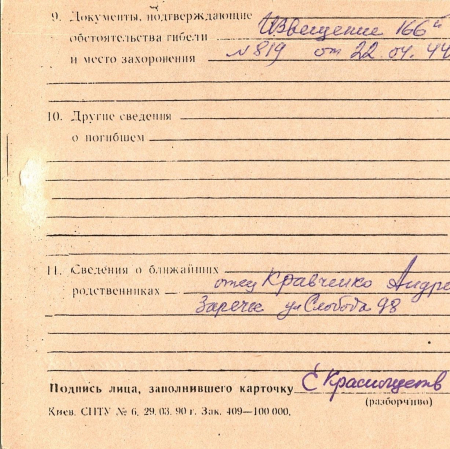 9. Документы, подтверждающие Извещение 166й
обстоятельства гибели № 819 от 22.04.44
и место захоронения
10. Другие сведения
о погибшем
11. Сведения о ближайших
родственниках отец Кравченко Андре
Заречье ул Слобода 98
Подпись лица, заполнившего карточку
(разборчиво)
Киев. СПТУ № 6, 29.03.90 г. Зак. 409—100 000.